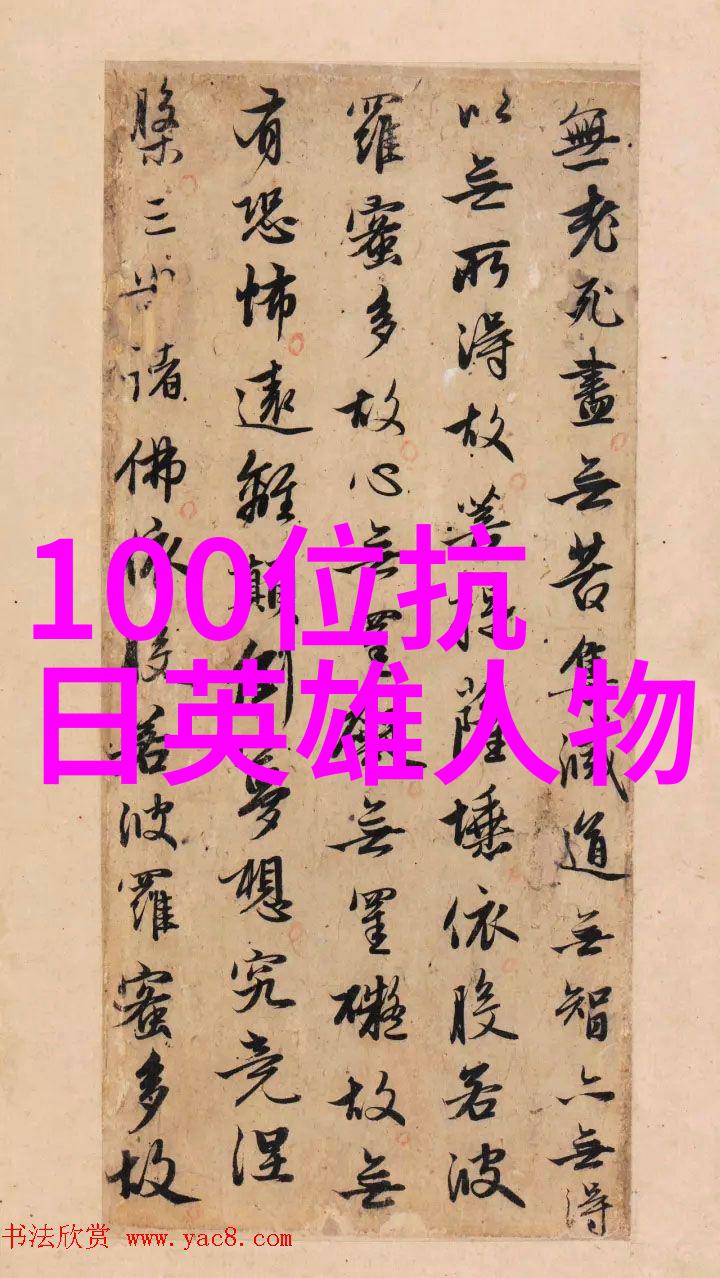 無老死盡無苦集滅道無智亦無得
以無所得故菩提薩埵依般若波
羅蜜多故心無罣礙無罣礙故無
有恐怖遠離顛倒夢想究竟涅
槃三世諸佛依般若波羅蜜多故
100位抗
日英雄人物
书法欣赏 www.yac8.com